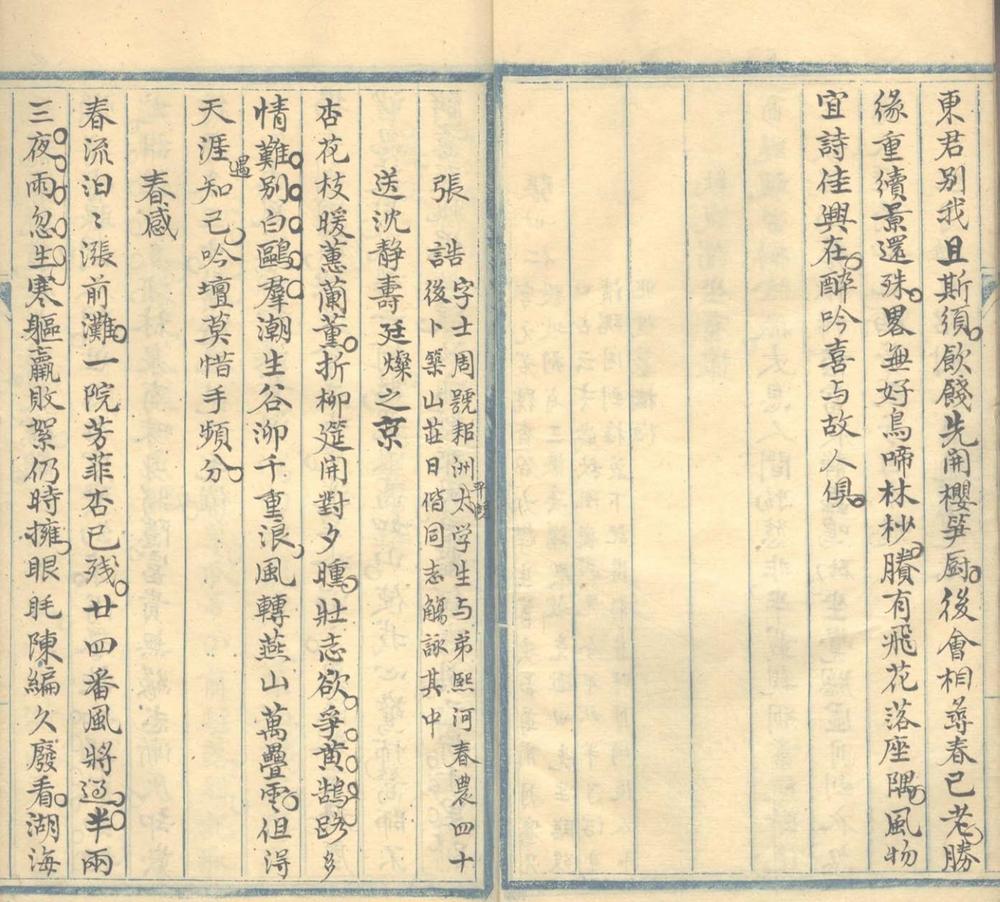 東君別我且斯須飲餞先開櫻笋厨後會相尋春已老勝
緣重續景還殊畧無好鳥啼林杪賸有飛花落座隅風物
宜詩佳興在醉吟喜与故人俱
張誥字士周號耜洲太学生与弟熙河春農四十
後築山莊日偕同志觴詠其中
送沈静壽廷燦之京
杏花枝暖蕙蘭薰折柳筵開對夕曛壯志欲爭黄鵠路多
情難别白鷗羣潮生谷泖千重浪風轉燕山萬疊雲但得
天涯遇知己吟壇莫惜手頻分
春感
春流汩〻漲前灘一院芳菲杏已残廿四番風將過半兩
三夜雨忽生寒軀羸敗絮仍時擁眼眊陳編久廢看湖海